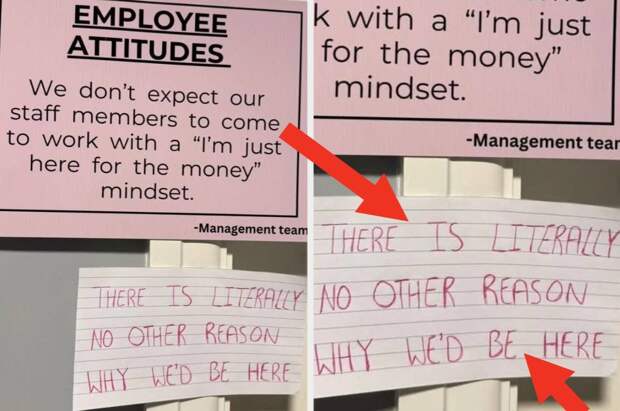 EMPLOYEE
ATTITUDES
We don't expect our
staff members to come
to work with a "I'm just
here for the money"
mindset.
-Management team
THERE IS LITERALLY
NO OTHER REASON
WHY WE'D BE HERE
k with a "I'm just
for the money"
mindset.
-Management tear
THERE IS LITERALLY
NO OTHER REASON
WHY WE'D BE HERE